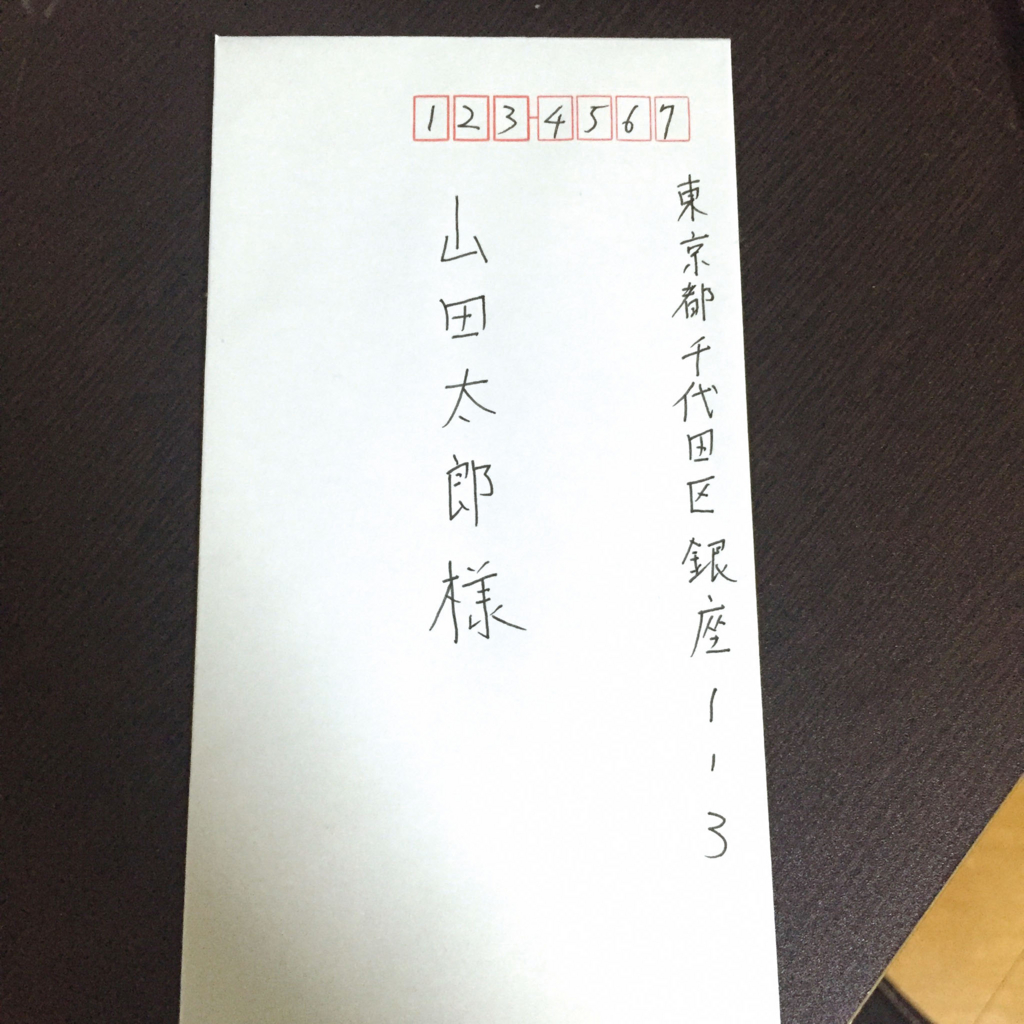 123-4567
東京都千代田区銀座1-3
山田太郎様